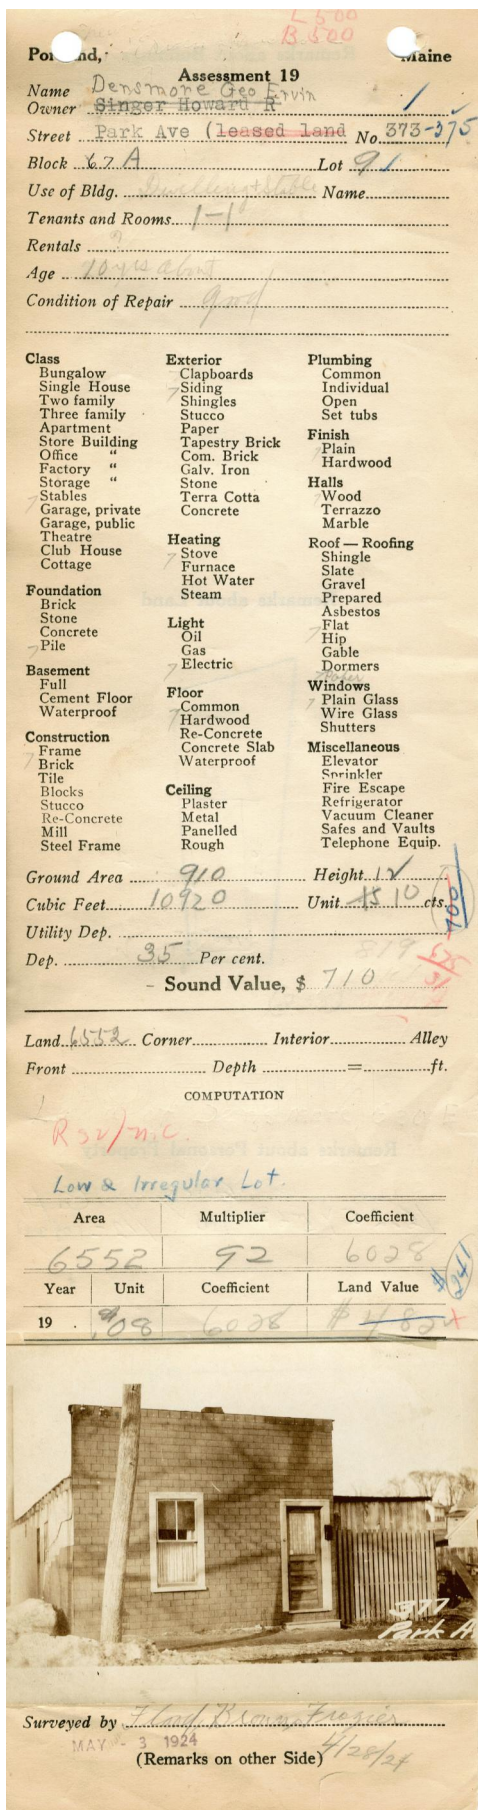 L 500
B 500
Portland, Maine
Assessment 19
Name Densmore Geo Ervin
Owner Singer Howard R 1
Street Park Ave (leased land No. 373-375
Block 67 A Lot 9
Use of Bldg. Dwelling & Stable Name
Tenants and Rooms 1-1
Rentals ?
Age 10 yrs about
Condition of Repair good
Class
Bungalow
Single House
Two family
Three family
Apartment
Store Building
Office "
Factory "
Storage "
Stables
Garage, private
Garage, public
Theatre
Club House
Cottage
Foundation
Brick
Stone
Concrete
Pile
Basement
Full
Cement Floor
Waterproof
Construction
Frame
Brick
Tile
Blocks
Stucco
Re-Concrete
Mill
Steel Frame
Exterior
Clapboards
Siding
Shingles
Stucco
Paper
Tapestry Brick
Com. Brick
Galv. Iron
Stone
Terra Cotta
Concrete
Heating
Stove
Furnace
Hot Water
Steam
Light
Oil
Gas
Electric
Floor
Common
Hardwood
Re-Concrete
Concrete Slab
Waterproof
Ceiling
Plaster
Metal
Panelled
Rough
Plumbing
Common
Individual
Open
Set tubs
Finish
Plain
Hardwood
Halls
Wood
Terrazzo
Marble
Roof — Roofing
Shingle
Slate
Gravel
Prepared
Asbestos
Flat
Hip
Gable
Dormers
Paper
Windows
Plain Glass
Wire Glass
Shutters
Miscellaneous
Elevator
Sprinkler
Fire Escape
Refrigerator
Vacuum Cleaner
Safes and Vaults
Telephone Equip.
Ground Area 910 Height 12
Cubic Feet 10920 Unit 15 10 cts.
700
Utility Dep.
Dep. 35 Per cent.
- Sound Value, $ 710
Land 6552 Corner Interior Alley
Front Depth = ft.
COMPUTATION
Low & Irregular Lot.
Area Multiplier Coefficient
6552 92 6028
Year Unit Coefficient Land Value $ 241
19 .08 6028 $ 482
377
Park A
Surveyed by Floyd Brown Frazier
MAY - 3 1924 4/28/24
(Remarks on other Side)